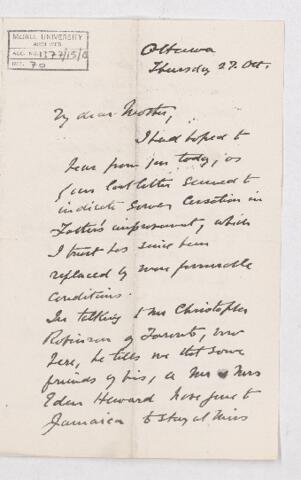 McGILL UNIVERSITY
ARCHIVES
ACC. NO. 1377/15/
REF. 70
Ottawa
Thursday 27. Oct.
My dear Mother,
I had hoped to
hear from you today, as
your last letter seemed to
indicate some cessation in
Father's improvement, which
I trust has since been
replaced by more favourable
conditions.
In talking to Mr Christopher
Robinson of Toronto, now
here, he tells me that some
friends of his, a Mr & Mrs
Eden Heward have gone to
Jamaica to stay at Miss